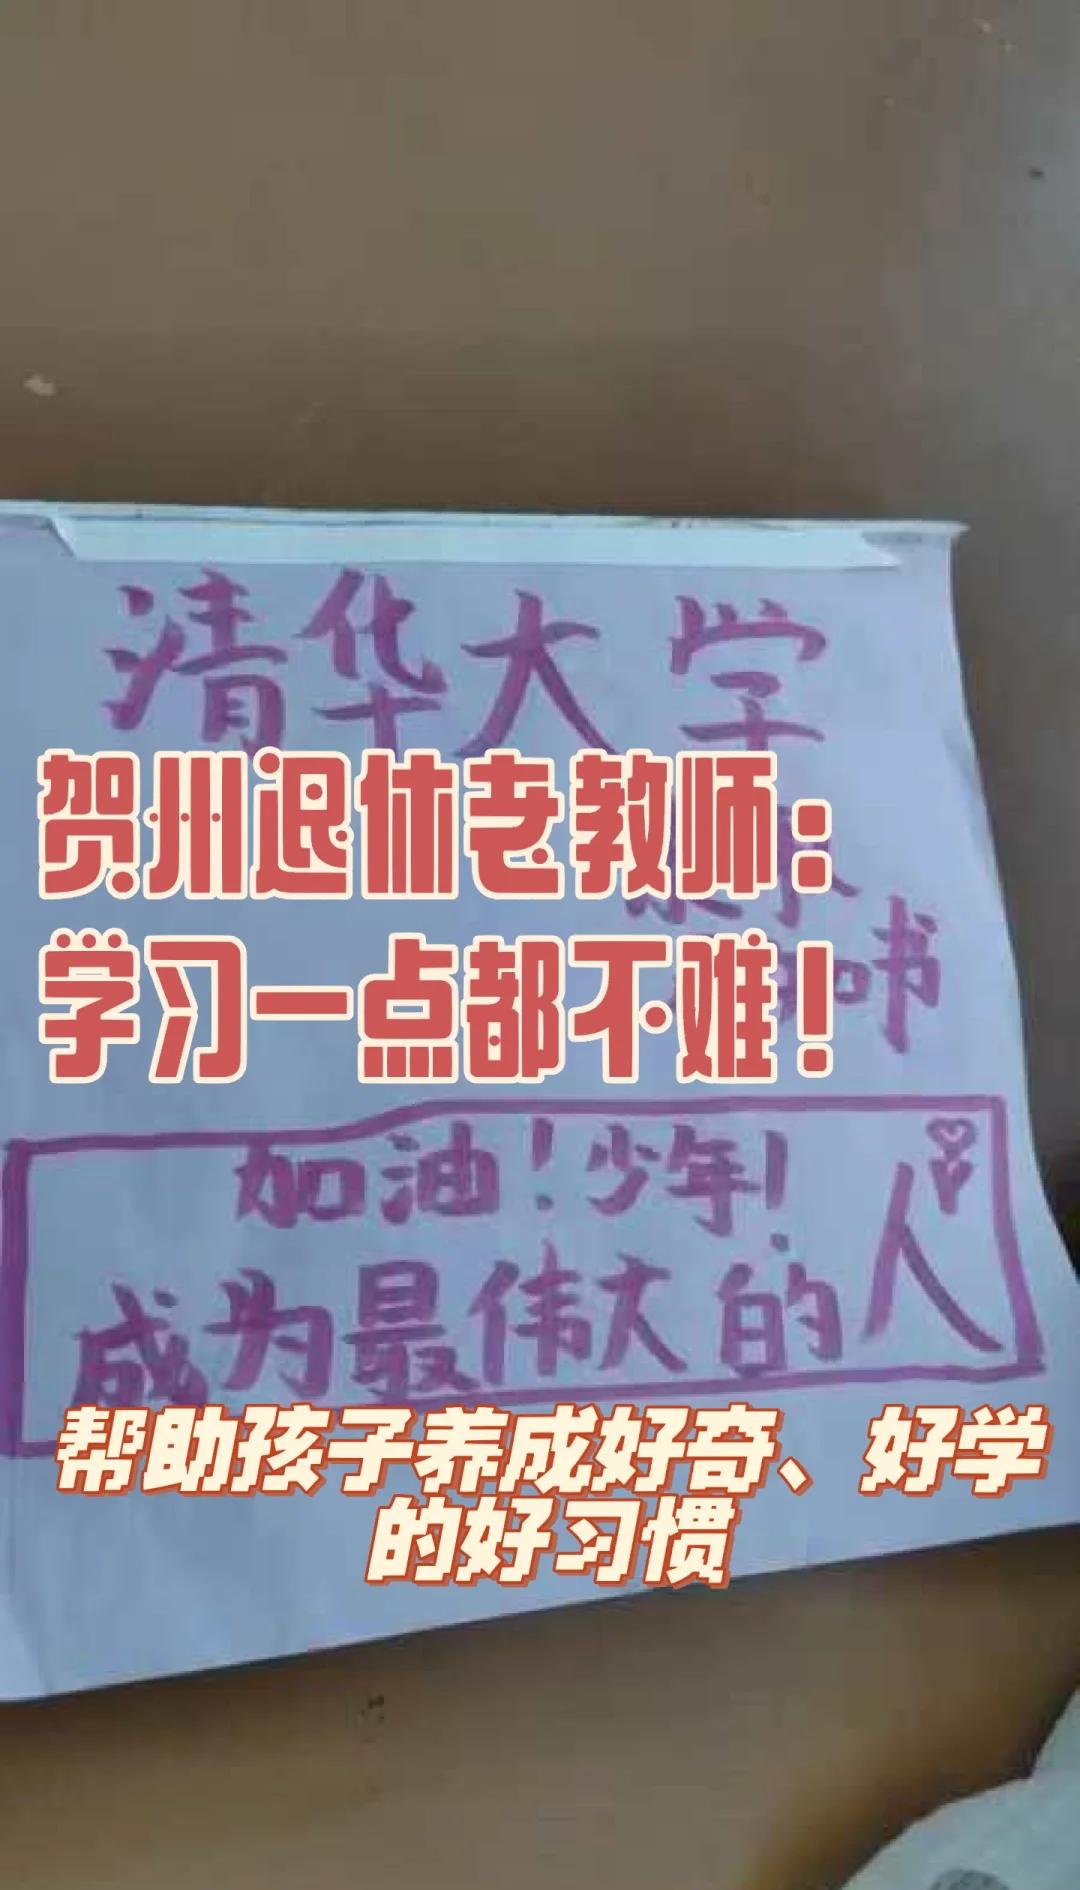 清华大学
贺州退休老教师：
学习一点都不难！
书
加油！少年！
成为最伟大的人
帮助孩子养成好奇、好学
的好习惯